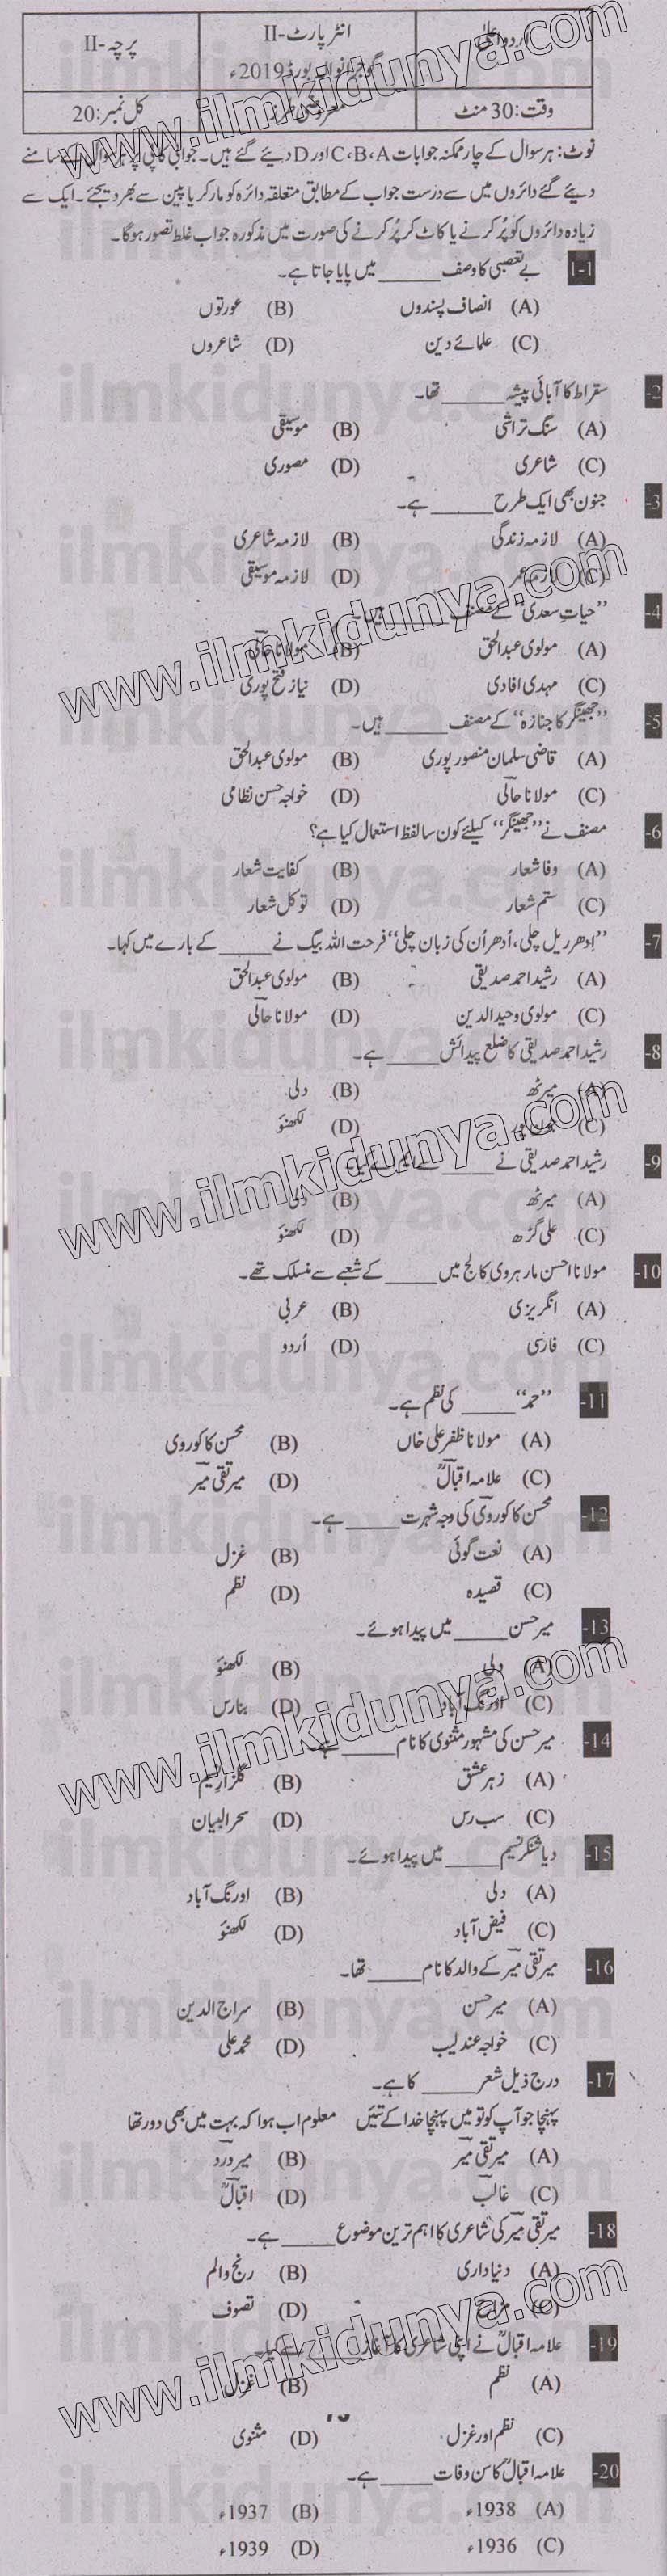 اردو اعلیٰ
انٹر پارٹ-II
گوجرانوالہ بورڈ 2019ء
پرچہ-II
وقت: 30 منٹ
معروضی طرز
کل نمبر: 20
نوٹ: ہر سوال کے چار ممکنہ جوابات C، B، A اور D دیئے گئے ہیں۔ جوابی کاپی پر ہر سوال کے سامنے
دیئے گئے دائروں میں سے درست جواب کے مطابق متعلقہ دائرہ کو مارکر یا پین سے بھر دیجئے۔ ایک سے
زیادہ دائروں کو پُر کرنے یا کاٹ کر پُر کرنے کی صورت میں مذکورہ جواب غلط تصور ہوگا۔
1-1 بے تعصبی کا وصف _____ میں پایا جاتا ہے۔
(A) انصاف پسندوں (B) عورتوں
(C) علمائے دین (D) شاعروں
-2 سقراط کا آبائی پیشہ _____ تھا۔
(A) سنگ تراشی (B) موسیقی
(C) شاعری (D) مصوری
-3 جنون بھی ایک طرح _____ ہے۔
(A) لازمہ زندگی (B) لازمہ شاعری
(C) لازمہ عمر (D) لازمہ موسیقی
-4 ’’حیاتِ سعدی‘‘ کے مصنف _____ ہیں۔
(A) مولوی عبدالحق (B) مولانا حالی
(C) مہدی افادی (D) نیاز فتح پوری
-5 ’’جھینگر کا جنازہ‘‘ کے مصنف _____ ہیں۔
(A) قاضی سلمان منصور پوری (B) مولوی عبدالحق
(C) مولانا حالی (D) خواجہ حسن نظامی
-6 مصنف نے ’’جھینگر‘‘ کیلئے کون سا لفظ استعمال کیا ہے؟
(A) وفا شعار (B) کفایت شعار
(C) ستم شعار (D) توکل شعار
-7 ’’اِدھر ریل چلی، اُدھر اُن کی زبان چلی‘‘ فرحت اللہ بیگ نے _____ کے بارے میں کہا۔
(A) رشید احمد صدیقی (B) مولوی عبدالحق
(C) مولوی وحید الدین (D) مولانا حالی
-8 رشید احمد صدیقی کا ضلع پیدائش _____ ہے۔
(A) میرٹھ (B) دلی
(C) جون پور (D) لکھنؤ
-9 رشید احمد صدیقی نے _____ سے
(A) میرٹھ (B) دلی
(C) علی گڑھ (D) لکھنؤ
-10 مولانا احسن مارہروی کالج میں _____ کے شعبے سے منسلک تھے۔
(A) انگریزی (B) عربی
(C) فارسی (D) اُردو
-11 ’’حمد‘‘ _____ کی نظم ہے۔
(A) مولانا ظفر علی خاں (B) محسن کاکوروی
(C) علامہ اقبالؒ (D) میر تقی میر
-12 محسن کاکوروی کی وجہ شہرت _____ ہے۔
(A) نعت گوئی (B) غزل
(C) قصیدہ (D) نظم
-13 میر حسن _____ میں پیدا ہوئے۔
(A) دلی (B) لکھنؤ
(C) اورنگ آباد (D) بنارس
-14 میر حسن کی مشہور مثنوی کا نام _____ ہے۔
(A) زہر عشق (B) گلزار نسیم
(C) سب رس (D) سحر البیان
-15 دیا شنکر نسیم _____ میں پیدا ہوئے۔
(A) دلی (B) اورنگ آباد
(C) فیض آباد (D) لکھنؤ
-16 میر تقی میر کے والد کا نام _____ تھا۔
(A) میر حسن (B) سراج الدین
(C) خواجہ عندلیب (D) محمد علی
-17 درج ذیل شعر _____ کا ہے۔
پہنچا جو آپ کو تو میں پہنچا خدا کے تئیں معلوم اب ہوا کہ بہت میں بھی دور تھا
(A) میر تقی میر (B) میر درد
(C) غالب (D) اقبالؒ
-18 میر تقی میر کی شاعری کا اہم ترین موضوع _____ ہے۔
(A) دنیا داری (B) رنج و الم
(C) مزاح (D) تصوف
-19 علامہ اقبالؒ نے اپنی شاعری کا آغاز _____ سے کیا۔
(A) نظم (B) غزل
(C) نظم اور غزل (D) مثنوی
-20 علامہ اقبالؒ کا سن وفات _____ ہے۔
(A) 1938ء (B) 1937ء
(C) 1936ء (D) 1939ء
www.ilmkidunya.com
www.ilmkidunya.com
www.ilmkidunya.com
www.ilmkidunya.com
www.ilmkidunya.com